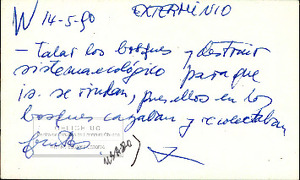 W 14-5-90 EXTERMINIO
- talar los bosques y destruir
sistema ecológico para que
is. se rindan, pues ellos en los
bosques cazaban y recolectaban
frutos
USADO